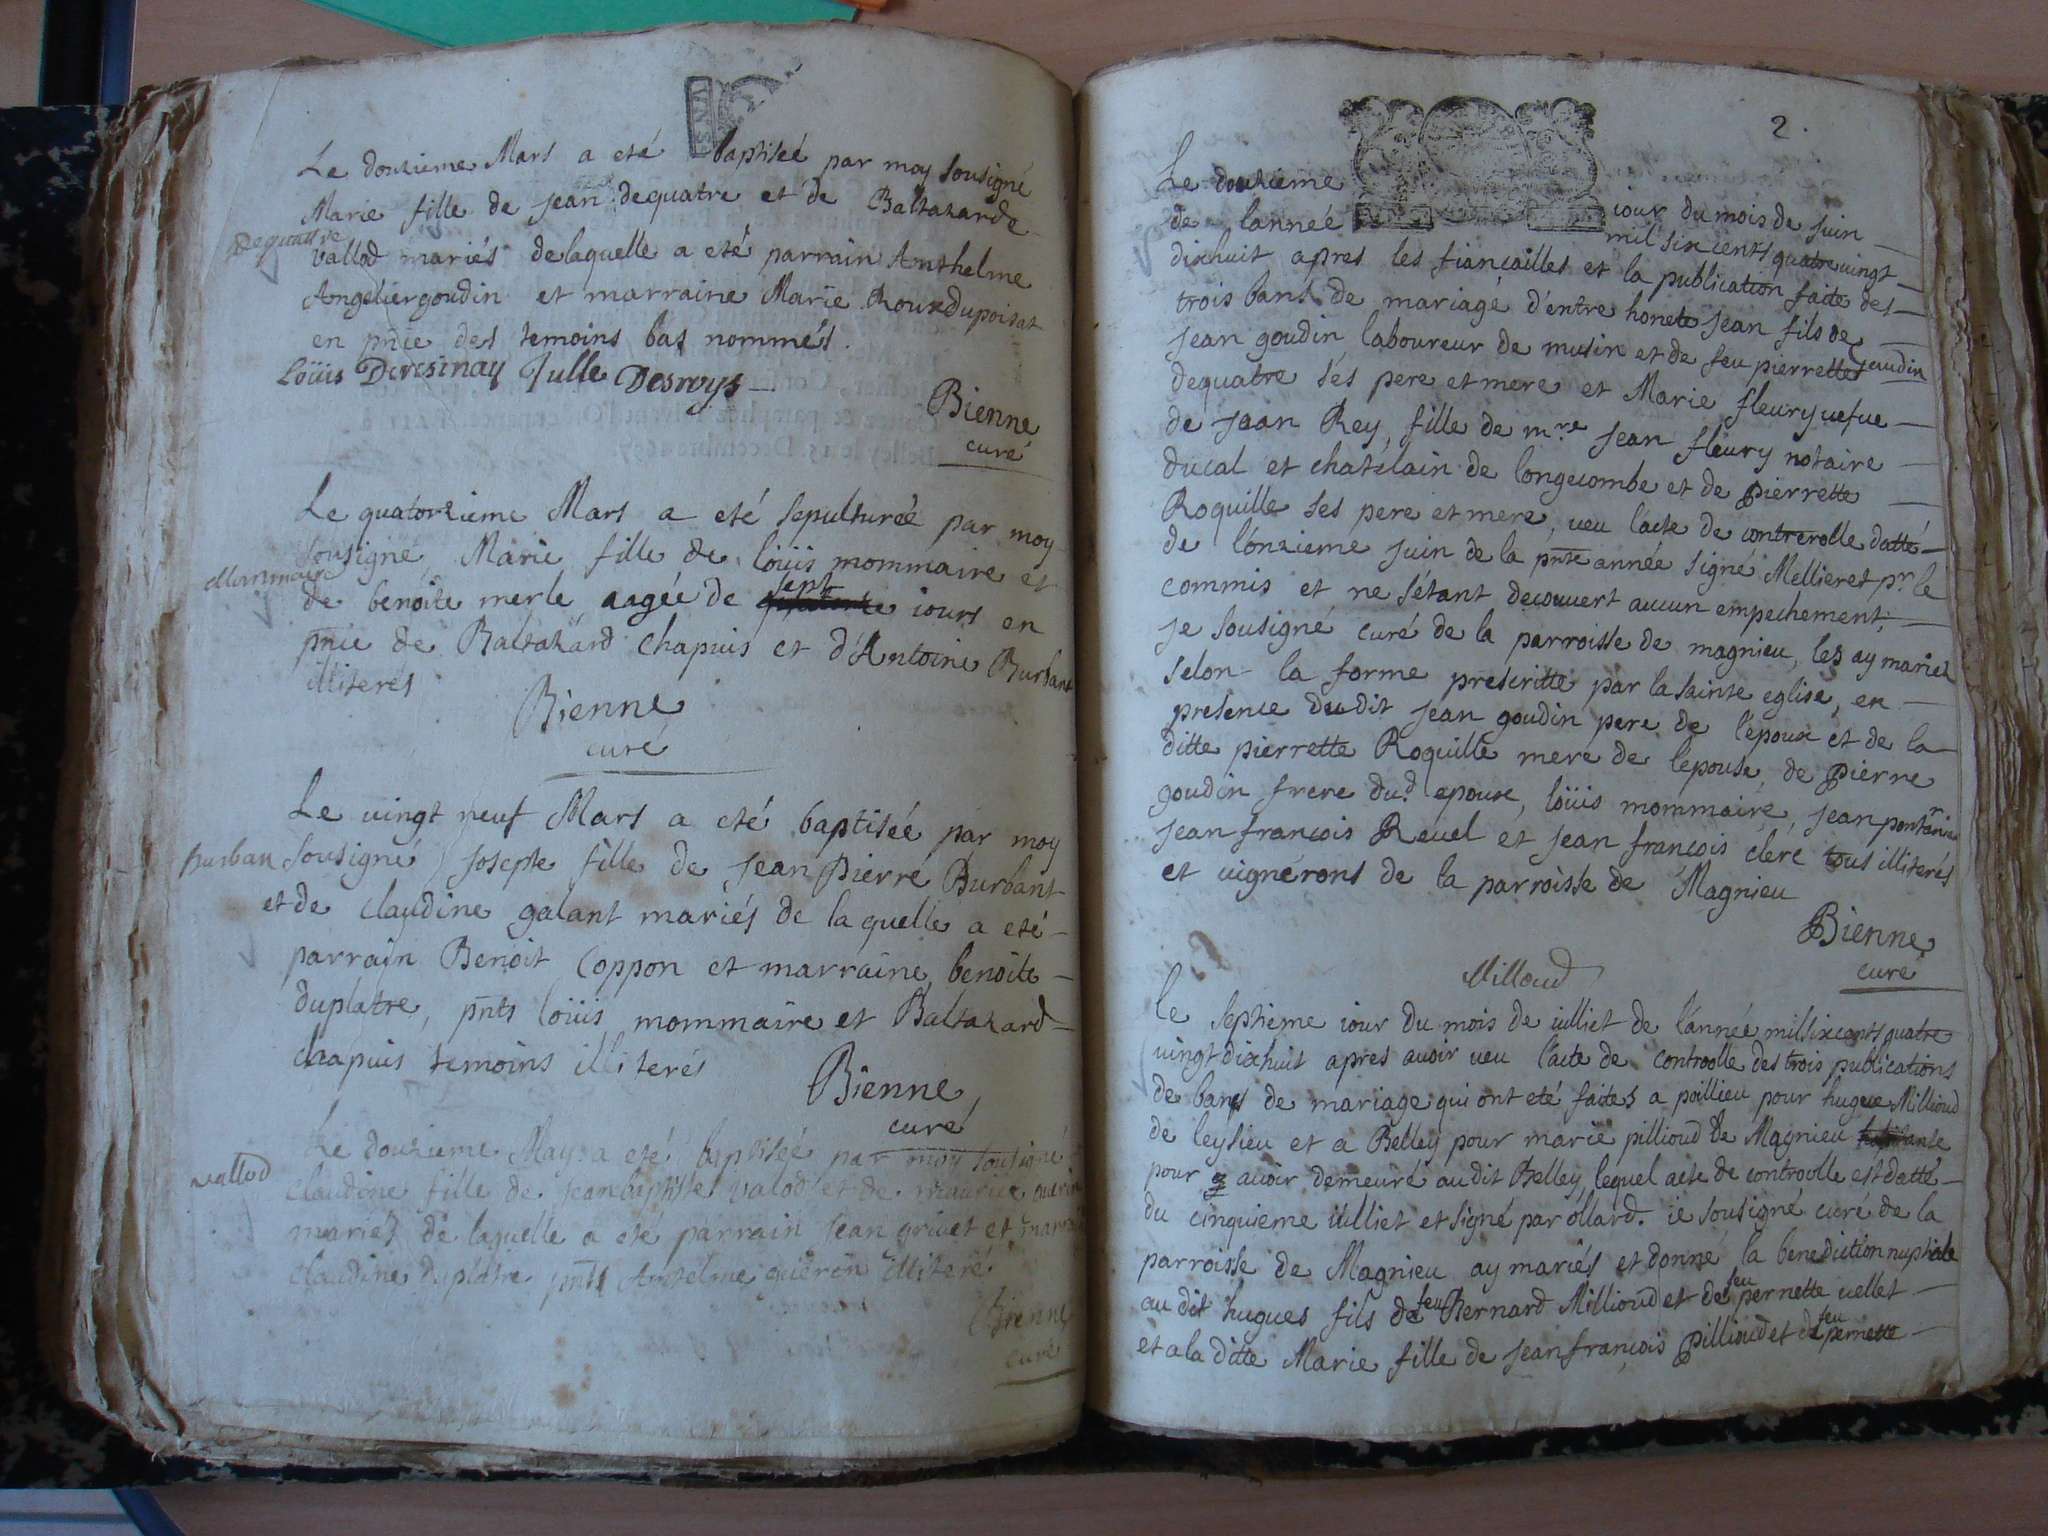 Le douzieme Mars a eté baptiseé par moy sousigné
Marie fille de jean dequatre et de Baltazarde
dequattre
vallod mariés delaquelle a eté parrain Anthelme
Angeliergoudin et marraine Marie Rouxdupoisat
en pnce des temoins bas nommés.
Loüis Julle Desroys
Bienne
curé
Le quatorzieme Mars a eté sepultureé par moy
sousigné, Marie fille de loüis mommaire et
Mommaire
sept
de benoite merle aagée de iours en
pnce de Baltazard chapuis et d'Antoine Burbant
illiterés
Bienne
curé
Le vingt neuf Mars a eté baptiseé par moy
burban
sousigné josepte fille de jean Pierre Burbant
et de claudine galant mariés de laquelle a eté
parrain Benoit Coppon et marraine benoite
duplatre, pnts loüis mommaire et Baltazard
chapuis temoins illiterés
Bienne
curé
Le douzieme May a eté baptisée par moy sousigné
vallod
claudine fille de jeanbaptiste valod et de maurice guerin
mariés de laquelle a eté parrain jean grivet et marraine
claudine duplatre pnts Antelme guerin illiteré
Bienne
curé
2.
Le douzieme iour du mois de juin
de lanneé mil six cents quatre vingt
dixhuit apres les fiancailles et la publication faite des
trois bans de mariage d'entre honete jean fils de
jean goudin laboureur de musin et de feu pierrette
gaudin
dequatre sés pere et mere et Marie fleury vefve
de jean Rey, fille de mre jean fleury notaire
ducal et chatelain de longecombe et de pierrette
Roquille ses pere et mere, veu l'acte de contrerolle datté
de l'onzieme juin de la pnte année signé Mellieret pr le
commis et ne s'étant decouvert aucun empechement,
je sousigné curé de la parroisse de magnieu, les ay mariez
selon la forme prescritte par la sainte eglise, en
presence dudit jean goudin pere de l'epoux et de la
ditte pierrette Roquille mere de lepouse, de pierre
goudin frere dud. epoux, loüis mommaire, jean pontanier
jean francois Revel et jean francois clerc tous illiterés
et vignérons de la parroisse de Magnieu
Bienne
curé
Milloud
Le septieme iour du mois de iulliet de l'anneé mil six cents quatre
vingt dixhuit apres avoir veu l'acte de controolle des trois publications
de bans de mariage qui ont eté faites a poillieu pour hugue Millioud
de leysieu et a Belley pour marie pillioud de Magnieu
pour avoir demeuré au dit Belley, lequel acte de controolle est datté
du cinquieme iulliet et signé par ollard. ie sousigné curé de la
parroisse de Magnieu ay mariés et donné la benediction nuptiale
au dit hugues fils de feu Bernard Millioud et de feu pernette vellet
et a la ditte Marie fille de jean françois pillioud et de feu pernette